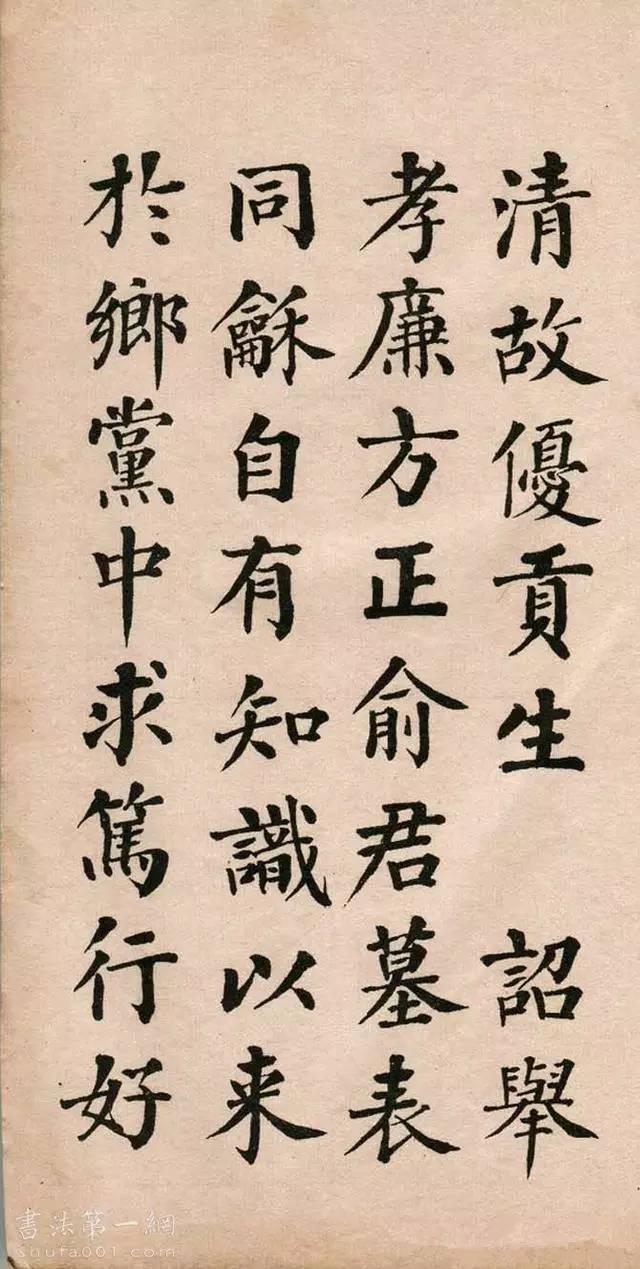 清故優貢生　詔舉
孝廉方正俞君墓表
同龢自有知識以来
於鄉黨中求篤行好
書法第一網
shufa001.com